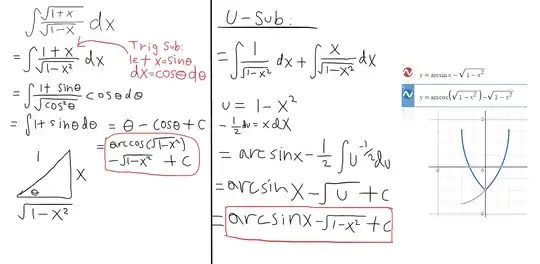 ∫ √(1+x)/√(1-x) dx
= ∫ (1+x)/√(1-x²) dx
Trig Sub:
let x=sinθ
dx=cosθdθ
= ∫ (1+sinθ)/√(cos²θ) cosθdθ
= ∫ 1+sinθdθ = θ - cosθ + C
= arccos(√(1-x²))
-√(1-x²) + C
1
x
θ
√(1-x²)
U-Sub:
= ∫ 1/√(1-x²) dx + ∫ x/√(1-x²) dx
u = 1-x²
-½du = xdx
= arcsinx - ½ ∫ u^(-½) du
= arcsinx - √u + C
= arcsinx - √(1-x²) + C
y = arcsin x - √(1-x²)
y = arccos(√(1-x²)) - √(1-x²)
2
-2
0
2
-2